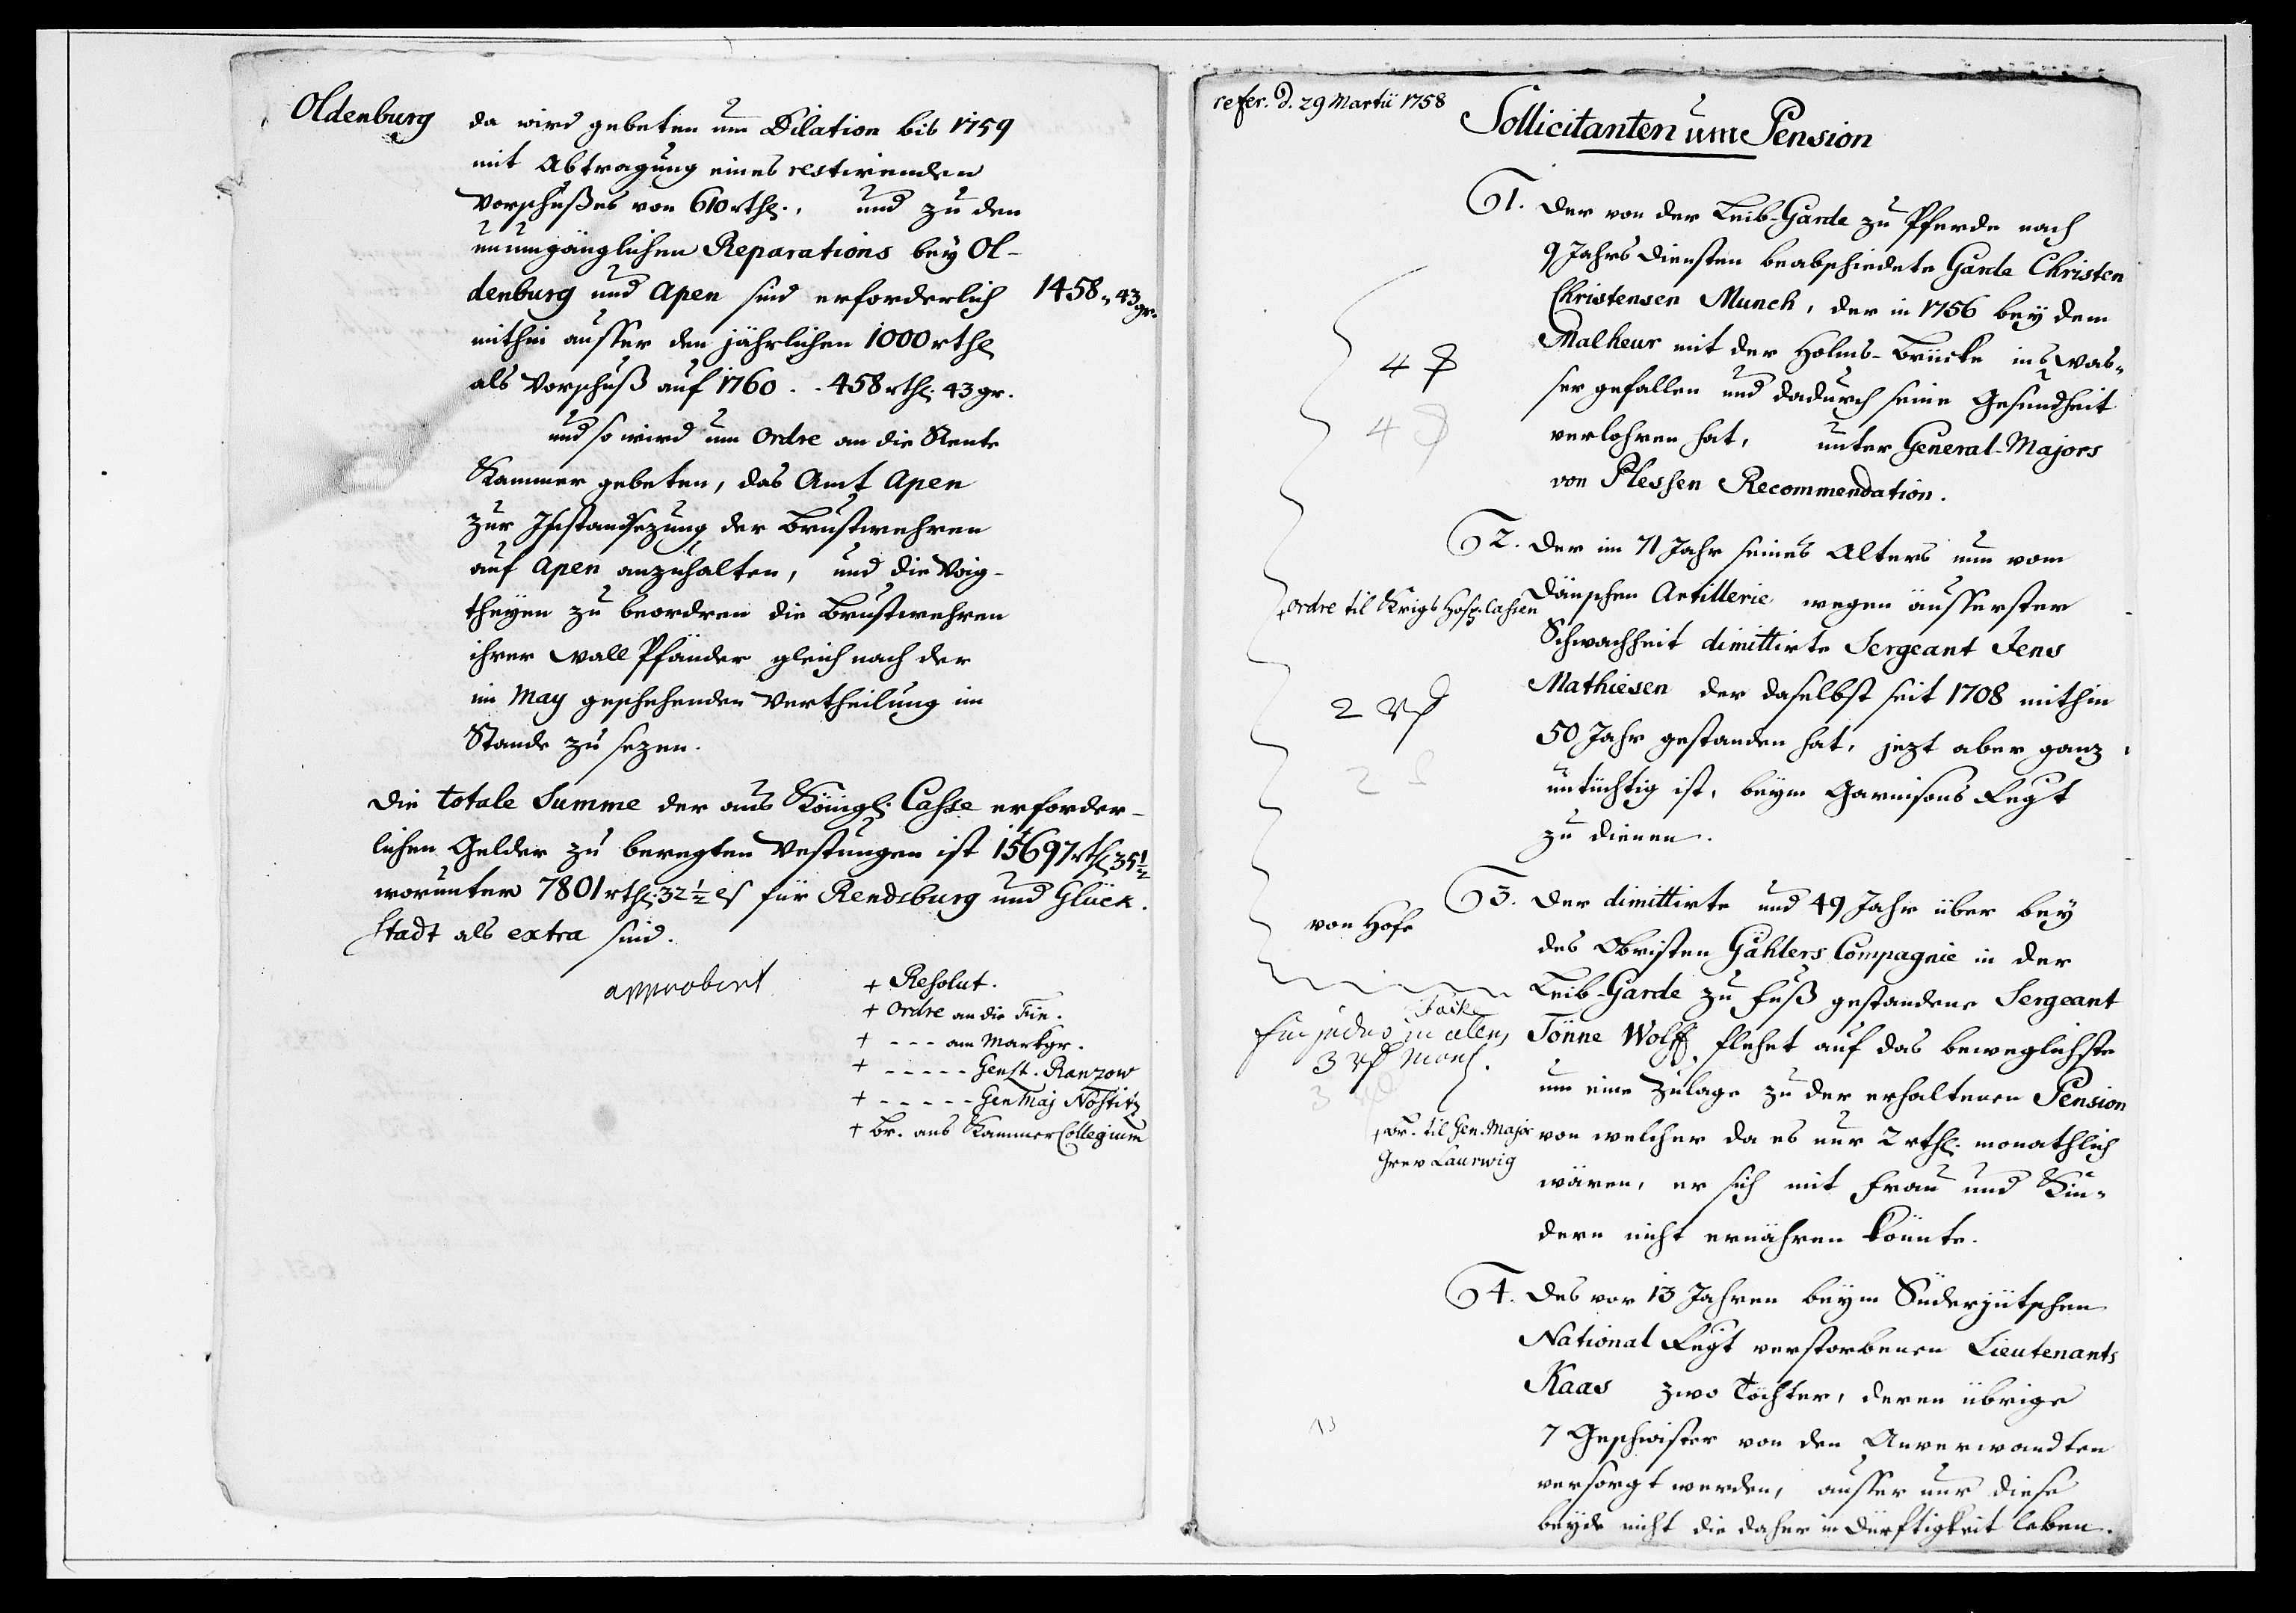 Oldenburg
da wird gebeten um Dilation bis 1759
mit Abtragung eines restirenden
Vorschußes von 610 rthl., und zu den
unumgänglichen Reparations bey Ol-
denburg und Apen sind erforderlich 1458 " 43 gr.
mithin ausser den jährlichen 1000 rthl
als Vorschuß auf 1760 . . 458 rthl. 43 gr.
und so wird um Ordre an die Rente
Kammer gebeten, das Amt Apen
zur Instandsezung der Brustwehren
auf Apen anzuhalten, und die Voig-
theyen zu beordren die Brustwehren
ihrer Wall Pfänder gleich nach der
im May geschehenden Vertheilung im
Stande zu sezen.
Die totale Summe der aus Königl. Casse erforder-
lichen Gelder zu beregten Vestungen ist 15697 rthl 35½
worunter 7801 rthl. 32½ ß für Rendsburg und Glück-
stadt als extra sind.
approbirt
+ Resolut.
+ Ordre an die Fin.
+ - - - am Markgr.
+ - - - - - GenLt. Ranzow
+ - - - - - GenMaj Nostitz
+ Br. ans Kammer Collegium
refer. d. 29 Martii 1758
Sollicitanten um Pension
1. Der von der Leib-Garde zu Pferde nach
9 Jahrs Diensten beabschiedete Garde Christen
Christensen Munch, der in 1756 bey dem
Malheur mit der Holms-Brücke ins Was-
ser gefallen und dadurch seine Gesundheit
verlohren hat, unter General-Majors
von Plessen Recommendation.
4
4
2. Der im 71 Jahr seines Alters nun vom
Dänschen Artillerie wegen äusserster
Schwachheit dimittirte Sergeant Jens
Mathiesen der daselbst seit 1708 mithin
50 Jahr gestanden hat, jezt aber ganz
untüchtig ist, beym Garnisons Regt
zu dienen.
Ordre til Krigs Hosp. Cassen
2 Rd
2
3. Der dimittirte und 49 Jahr über bey
des Obristen Gählers Compagnie in der
Leib-Garde zu Fuß gestandene Sergeant
Tönne Wolff, flehet auf das beweglichste
um eine Zulage zu der erhaltenen Pension
von welcher da es nur 2 rthl. monathlich
wären, er sich mit Frau und Kin-
dern nicht ernähren könnte.
von Hofe
3 Rd
3
Or. til Gen. Major
Grev Laurwig
4. Des vor 13 Jahren beym Süderjütschen
National Regt verstorbenen Lieutenants
Kaas zwo Töchter, deren übrige
7 Geschwister von den Anverwandten
versorgt werden, ausser nur diese
beyde nicht die daher in Dürftigkeit leben.